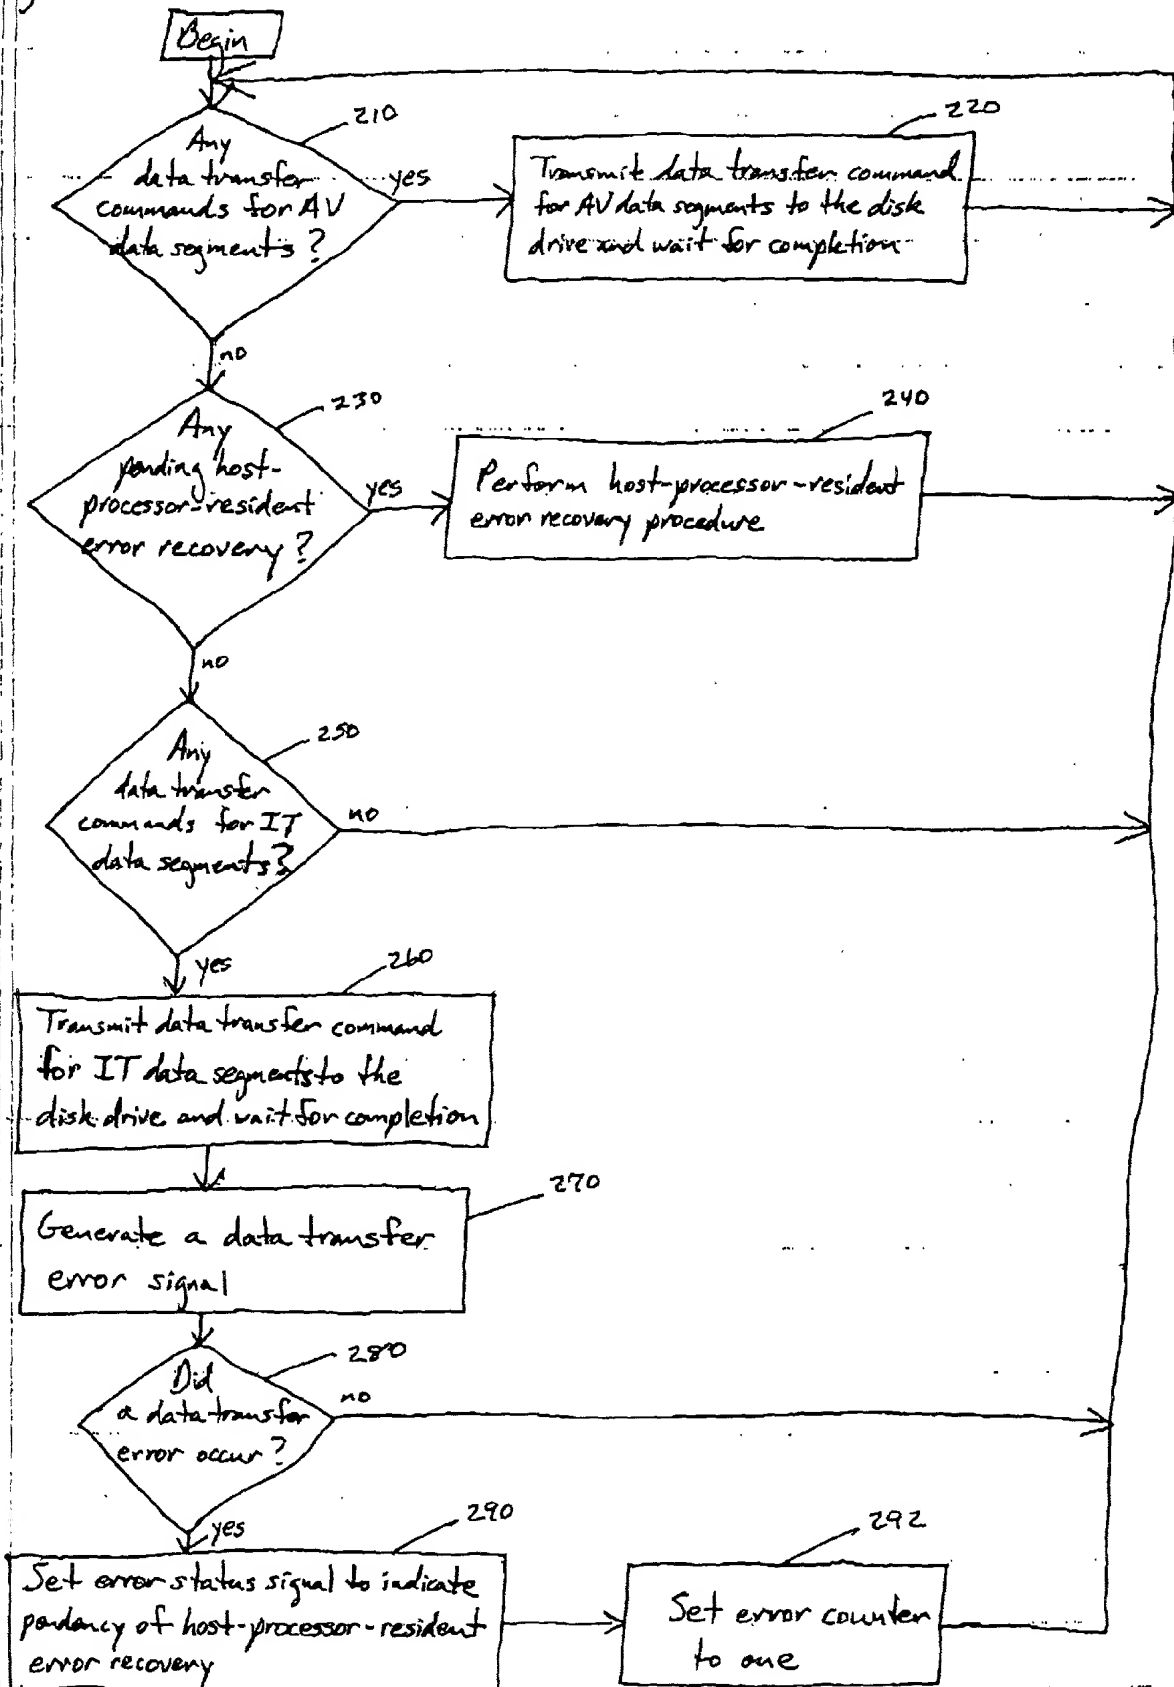 Begin
210
Any
data transfer
commands for AV
data segments?
yes
220
Transmit data transfer command
for AV data segments to the disk
drive and wait for completion
no
230
Any
pending host-
processor-resident
error recovery?
yes
240
Perform host-processor-resident
error recovery procedure
no
250
Any
data transfer
commands for IT
data segments?
no
yes
260
Transmit data transfer command
for IT data segments to the
disk drive and wait for completion
270
Generate a data transfer
error signal
280
Did
a data transfer
error occur?
no
yes
290
Set error status signal to indicate
pendancy of host-processor-resident
error recovery
292
Set error counter
to one